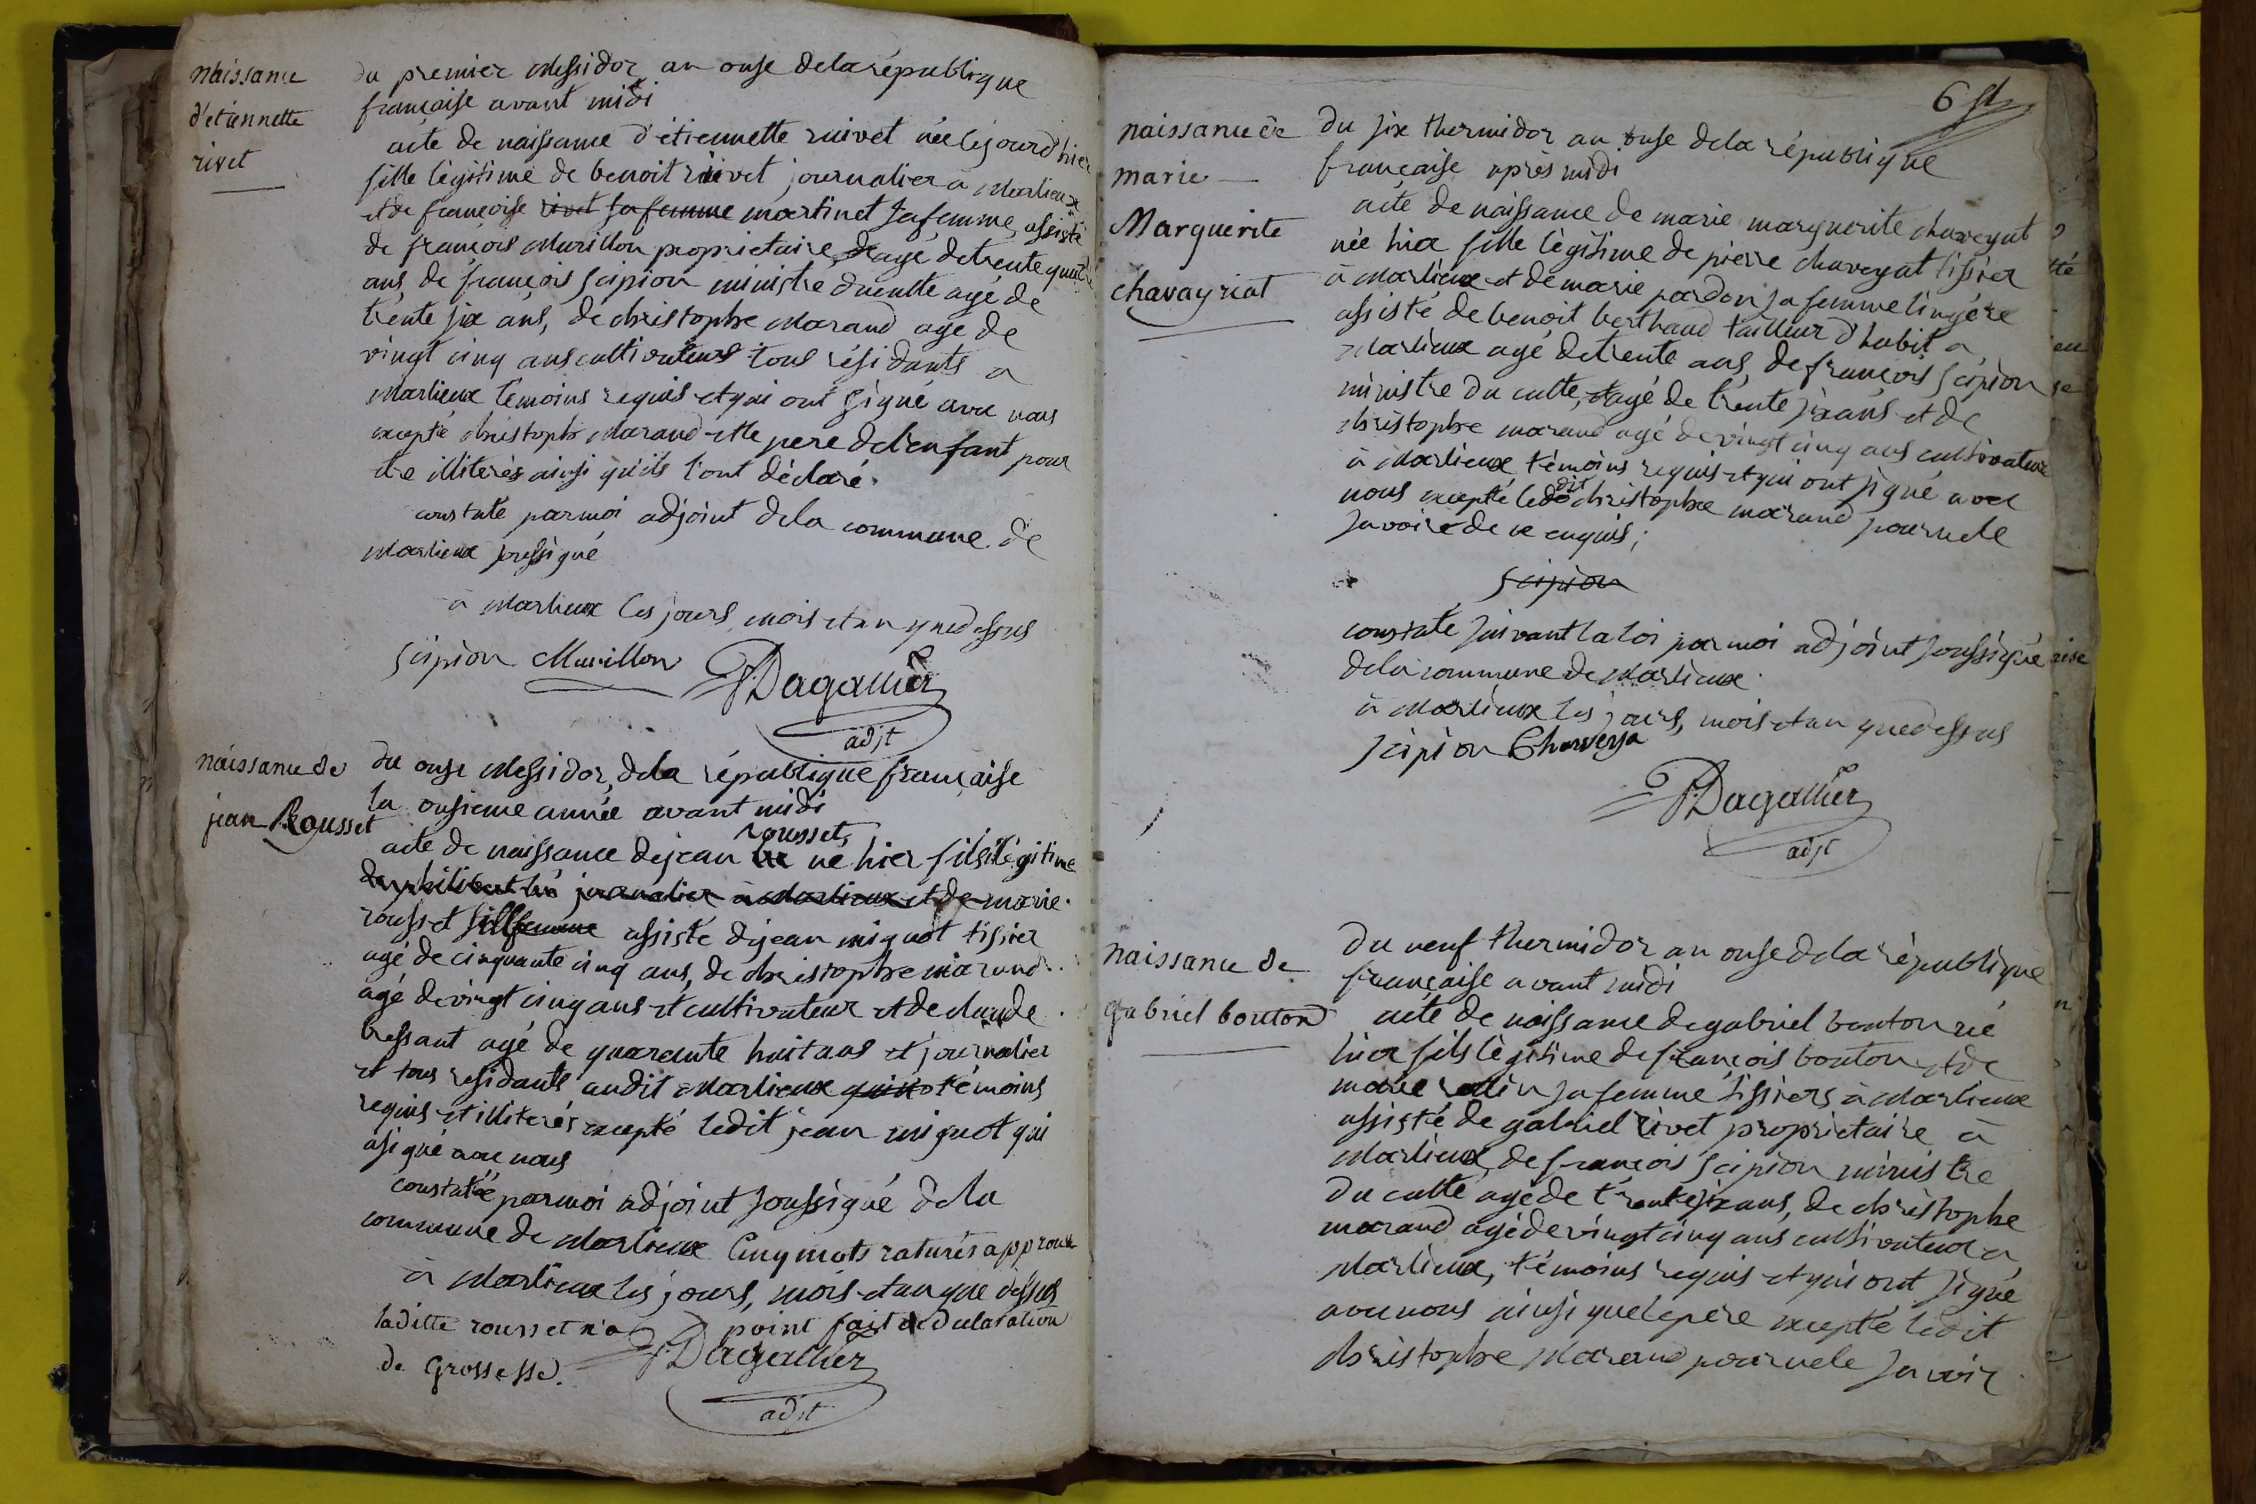 naissance
d'etiennette
rivet
du premier Messidor an onse dela république
française avant midi
acte de naissance d'étiennette rivet née le jourd'hier
fille légitime de benoit rivet journalier à Marlieux
et de françoise rivet sa femme martinet sa femme, assisté
de françois Murillon proprietaire, agé de trente quatre
ans de françois scipion ministre du culte agé de
trente six ans, de christophe Marand agé de
vingt cinq ans cultivateurs tous résidants a
Marlieux témoins requis et qui ont signé avec nous
excepté christophe Marand et le pere de l'enfant pour
etre illiterés ainsi qu'ils l'ont déclaré.
constaté par moi adjoint dela commune de
Marlieux soussigné
à Marlieux les jours, mois et an que dessus
Scipion Murillon Dagallier
adjt
naissance de
jean Rousset
du onse Messidor, dela république française
la onsieme année avant midi
rousset,
acte de naissance de jean né hier fils légitime
de philibert journalier à Marlieux et de marie
rousset sa femme assisté de jean miguot tissier
agé de cinquante cinq ans, de christophe marand
agé de vingt cinq ans et cultivateur et de claude
bressant agé de quarente huit ans et journalier
et tous résidants audit Marlieux témoins
requis et illiterés excepté ledit jean miguot qui
a signé avec nous
constatée par moi adjoint soussigné dela
commune de Marlieux Cinq mots raturés approuvé
à Marlieux les jours, mois et an que dessus
laditte rousset n'a point fait de declaration
de Grossesse. Dagallier
adjt
6
naissance de
marie
Marguerite
chavayriat
du six thermidor an onse dela république
française après midi
acte de naissance de marie marguerite chaveyat
née hier fille légitime de pierre chaveyat tissier
à Marlieux et de marie pardon sa femme lingére
assisté de benoit berthaud tailleur d'habit a
Marlieux agé de trente ans, de françois scipion
ministre du culte, agé de trente six ans et de
christophe marand agé de vingt cinq ans cultivateur
à Marlieux, témoins requis et qui ont signé avec
nous excepté ledit christophe marand pour ne le
savoir de ce enquis;
scipion
constaté suivant la loi par moi adjoint soussigné
dela commune de Marlieux.
à Marlieux les jours, mois et an que dessus
scipion
Dagallier
adjt
naissance de
gabriel bouton
du neuf thermidor an onse dela république
française avant midi
acte de naissance de gabriel bouton né
hier fils légitime de françois bouton et de
marie sa femme tissiers à Marlieux
assisté de gabriel rivet proprietaire à
Marlieux, de françois scipion ministre
du culte agé de trente six ans, de christophe
marand agé de vingt cinq ans cultivateur a
Marlieux, témoins requis et qui ont signé
avec nous ainsi que le pere excepté ledit
christophe Marand pour ne le savoir